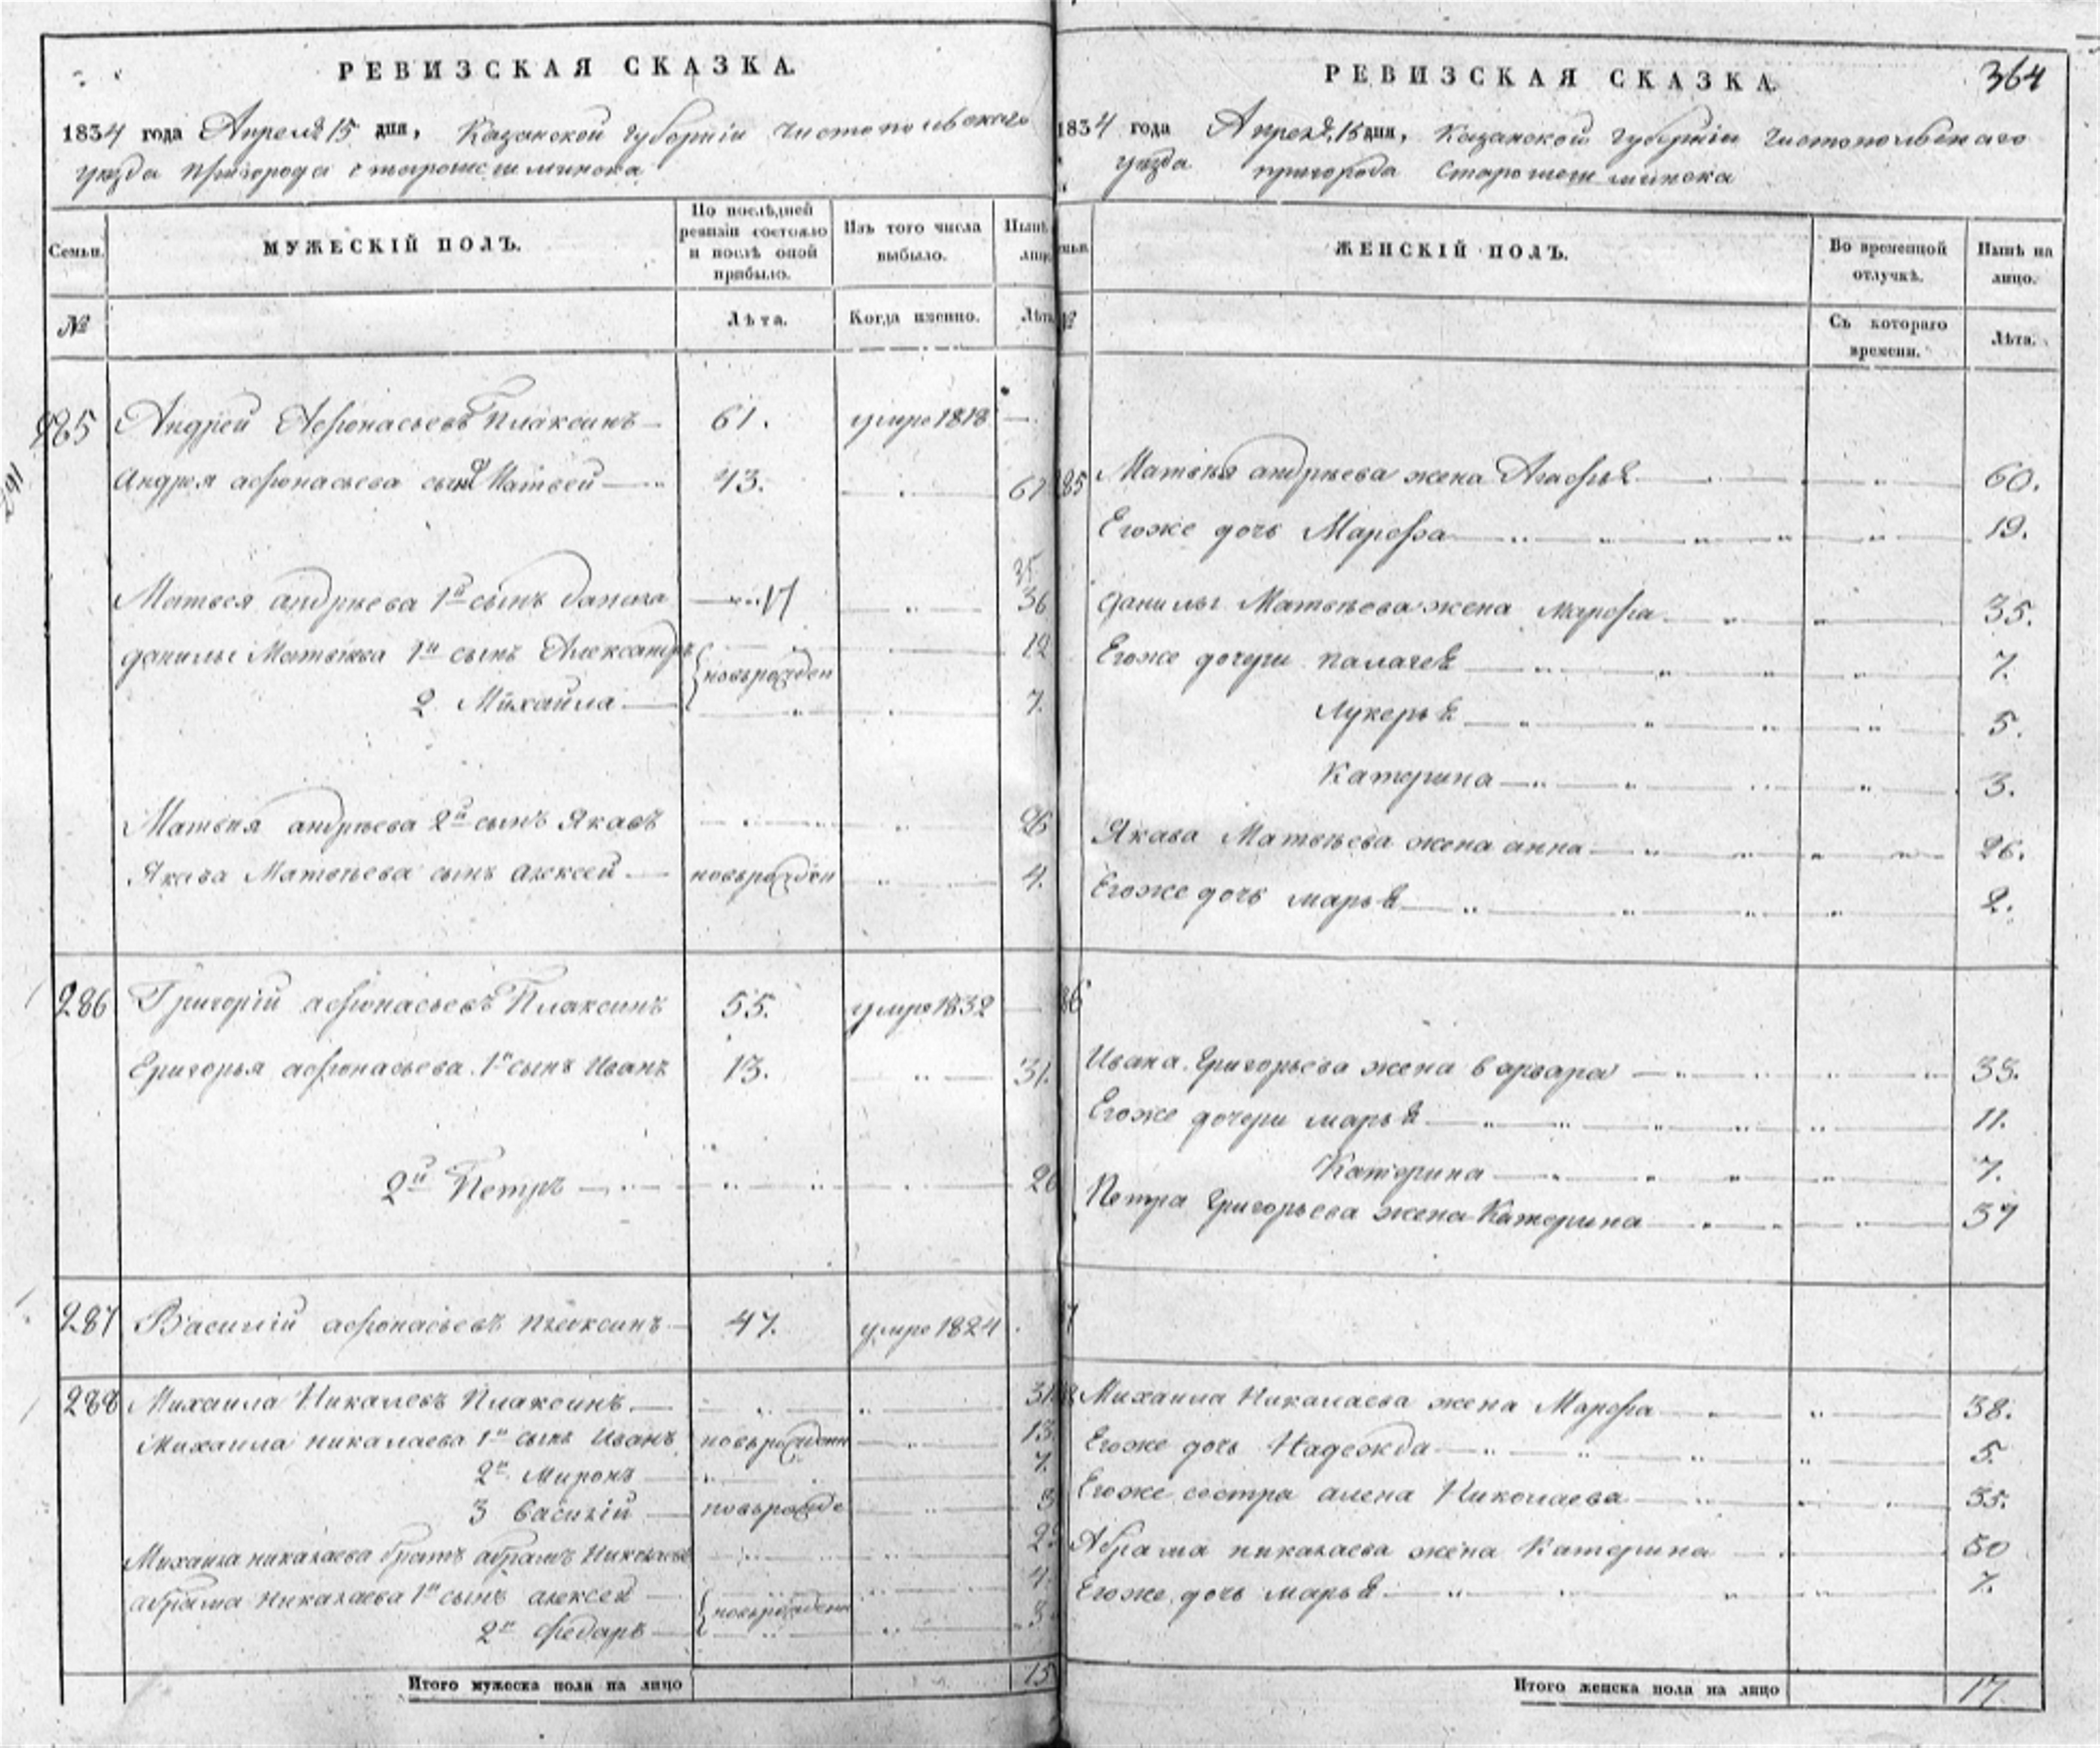 РЕВИЗСКАЯ СКАЗКА.
1834 года Апреля 15 дня, Казанской губерніи Чистопольскаго
уезда пригорода Старошешминска
Семьи.
МУЖЕСКІЙ ПОЛЪ.
По послѣдней ревизіи состояло и послѣ оной прибыло.
Изъ того числа выбыло.
Нынѣ
лицо
№
Лѣта.
Когда именно.
Лѣта
285 Андрей Афонасьевъ Плаксинъ 61. умре 1818
Андрея афонасьева сынъ Матвей 43. 61
291
35
Матвея андреева 1й сынъ данила 17 36
данилы Матвѣева 1й сынъ Александръ новорожден 12
2 Михаила 7.
Матвѣя андрѣева 2й сынъ Якавъ 26
Якава Матвѣева сынъ алексей новорожден 4.
286 Григорій афонасьевъ Плаксинъ 55. умре 1832
Григорья афонасьева 1й сынъ Иванъ 13. 31.
2й Петръ 20
287 Василій афонасьевъ плаксинъ 47. умре 1824
288 Михаила Никалевъ Плаксинъ 31
Михаила никалаева 1й сынъ Иванъ новорожденн 13.
2й Миронъ 7.
3 Василій новорожде 3
Михаила никалаева братъ абрамъ Никалаевъ
абрама никалаева 1й сынъ алексей новорожденн 4.
2й Федаръ 3
Итого мужеска пола на лицо 15
РЕВИЗСКАЯ СКАЗКА.
364
1834 года Апреля 15 дня, Казанской губерніи Чистопольскаго
уезда пригорода Старошешминска
ЖЕНСКІЙ ПОЛЪ.
Во временной отлучкѣ.
Нынѣ на лицо.
№
Съ котораго времени.
Лѣта.
85 Матвѣя андрѣева жена Агафья 60.
Егоже дочь Марфа 19.
данилы Матвѣева жена марфа 35.
Егоже дочери палагея 7.
Лукерья 5.
Катерина 3.
Якава Матвѣева жена анна 26.
Егоже дочь марья 2.
86
Ивана Григорьева жена варвара 33.
Егоже дочери марья 11.
Катерина 7.
Петра Григорьева жена Катерина 37
7
Михаила Никалаева жена Марфа 38.
Егоже дочь Надежда 5.
Егоже сестра алена Николаева 35.
Абрама никалаева жена Катерина 50
Егоже дочь марья 7.
Итого женска пола на лицо 17